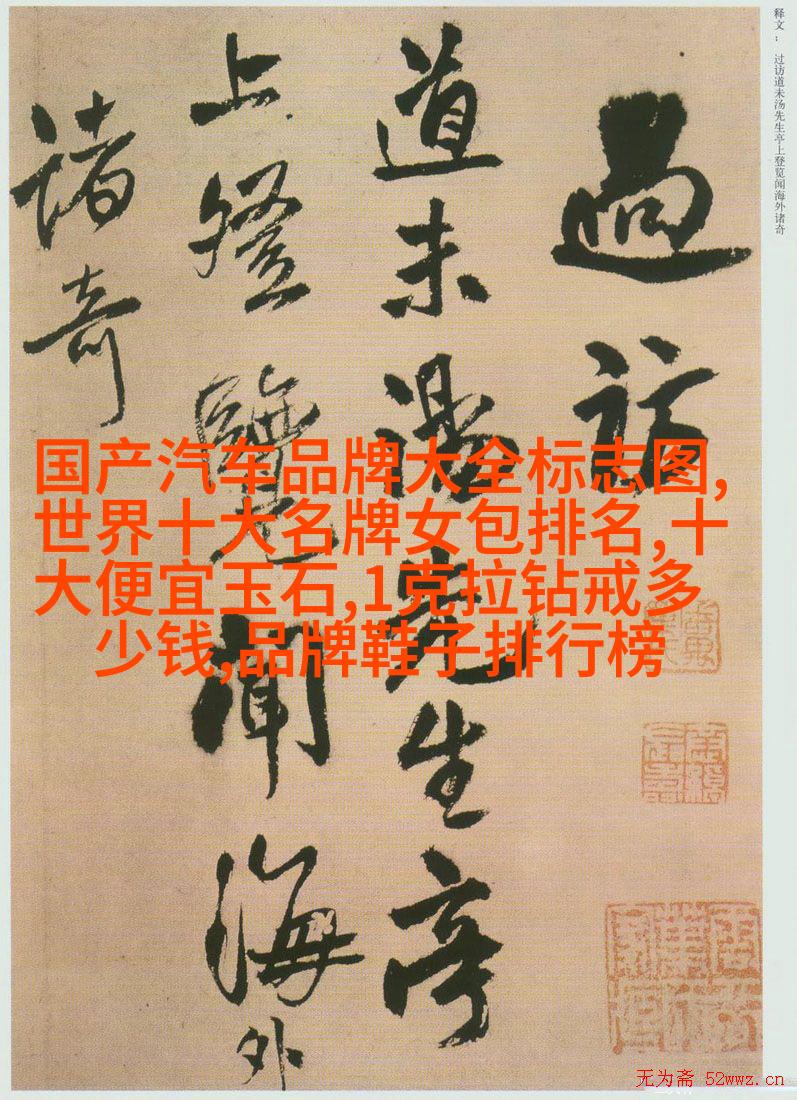 释文： 过访道未汤先生亭上登览闻海外诸奇
過訪
道未湯先生亭
上登覽聞海外
諸奇
国产汽车品牌大全标志图,
世界十大名牌女包排名,十
大便宜玉石,1克拉钻戒多
少钱,品牌鞋子排行榜
无为斋 52wwz.cn